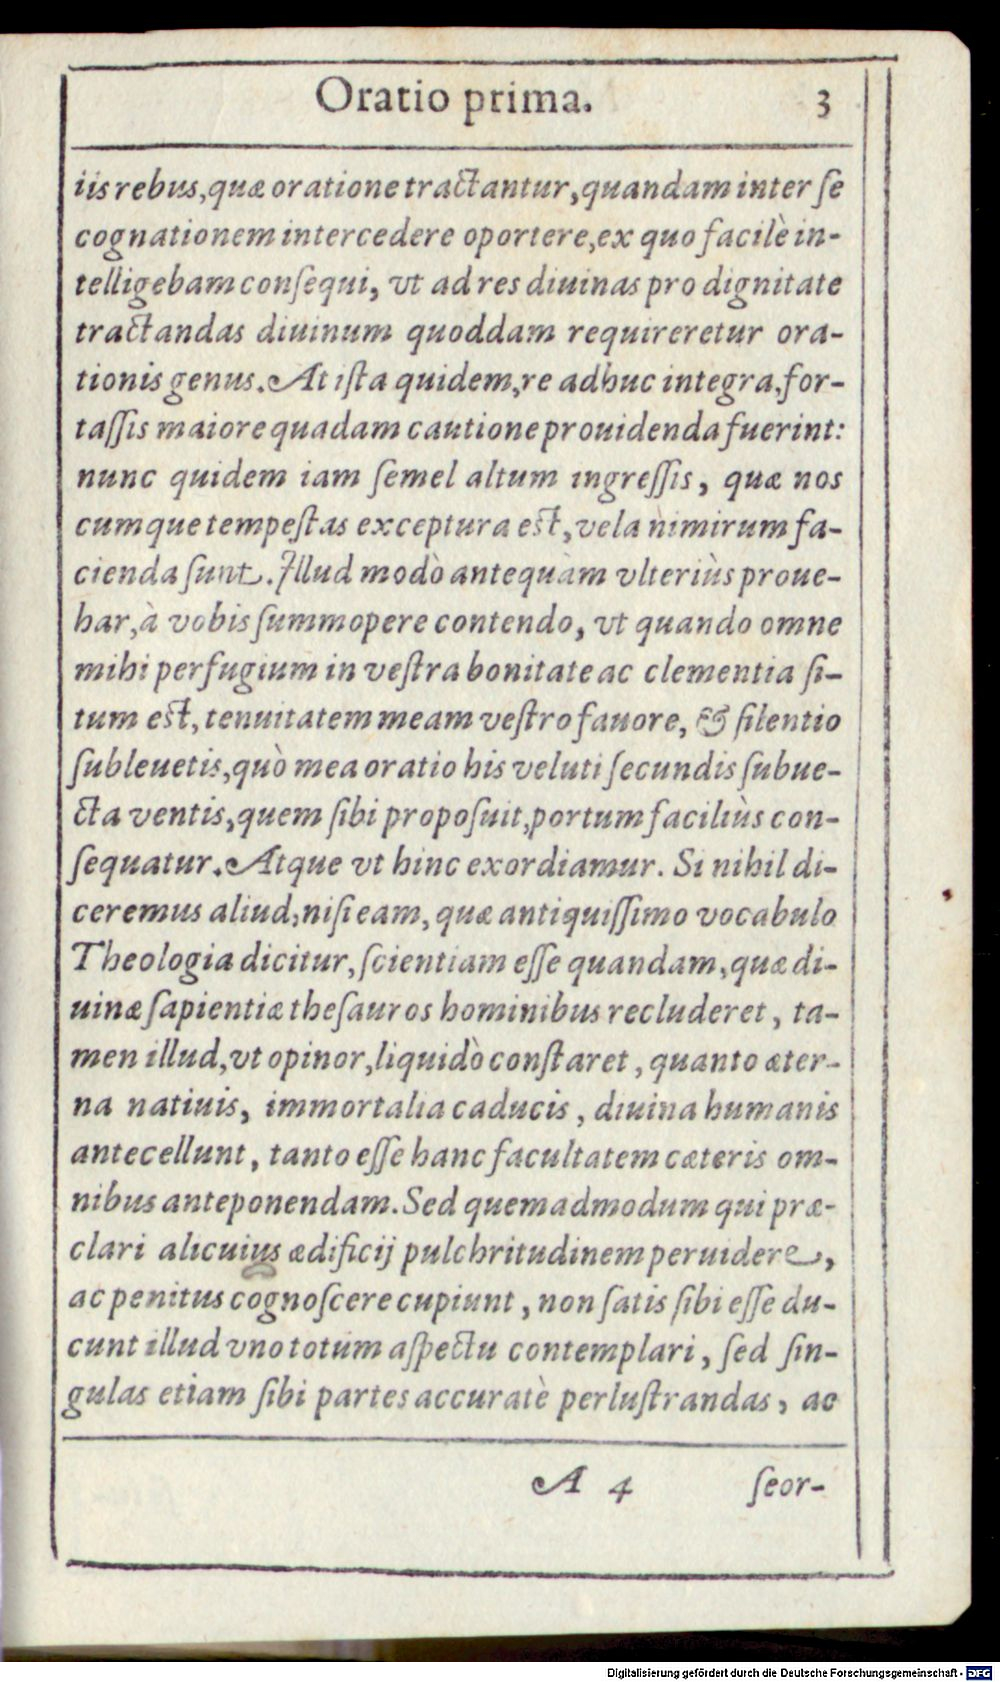 Oratio prima. 3
iis rebus, quæ oratione tractantur, quandam inter ſe
cognationem intercedere oportere, ex quo facilè in-
telligebam conſequi, vt ad res diuinas pro dignitate
tractandas diuinum quoddam requireretur ora-
tionis genus. At iſta quidem, re adhuc integra, for-
taſſis maiore quadam cautione prouidenda fuerint:
nunc quidem iam ſemel altum ingreſſis, quæ nos
cumque tempeſtas exceptura eſt, vela nimirum fa-
cienda ſunt. Illud modò antequàm vlteriùs proue-
har, à vobis ſummopere contendo, vt quando omne
mihi perfugium in veſtra bonitate ac clementia ſi-
tum eſt, tenuitatem meam veſtro fauore, & ſilentio
ſubleuetis, quò mea oratio his veluti ſecundis ſubue-
cta ventis, quem ſibi propoſuit, portum faciliùs con-
ſequatur. Atque vt hinc exordiamur. Si nihil di-
ceremus aliud, niſi eam, quæ antiquiſſimo vocabulo
Theologia dicitur, ſcientiam eſſe quandam, quæ di-
uinæ ſapientiæ theſauros hominibus recluderet, ta-
men illud, vt opinor, liquidò conſtaret, quanto æter-
na natiuis, immortalia caducis, diuina humanis
antecellunt, tanto eſſe hanc facultatem cæteris om-
nibus anteponendam. Sed quemadmodum qui præ-
clari alicuius ædificij pulchritudinem peruidere,
ac penitus cognoſcere cupiunt, non ſatis ſibi eſſe du-
cunt illud vno totum aſpectu contemplari, ſed ſin-
gulas etiam ſibi partes accuratè perluſtrandas, ac
A 4 ſeor-
Digitalisierung gefördert durch die Deutsche Forschungsgemeinschaft - DFG